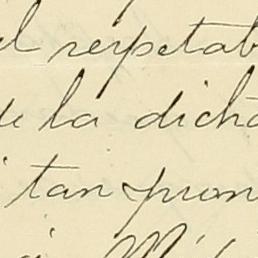 el respetab
de la dicha
tan pron